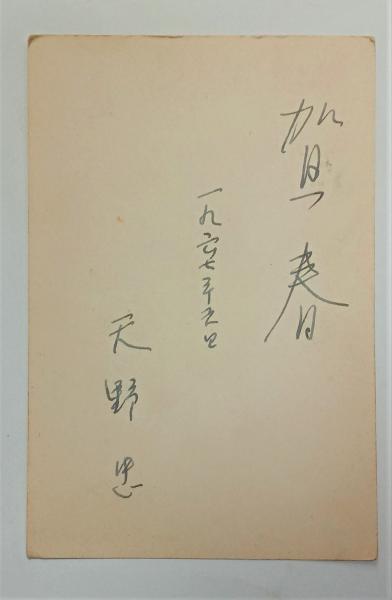 賀春
一九六七年元旦
天野忠